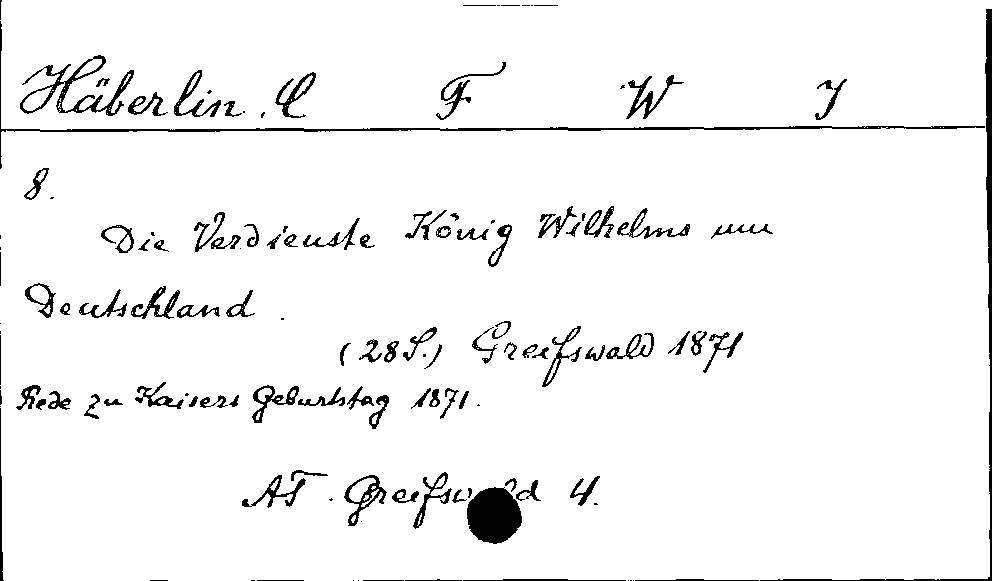 Häberlin. C F W J
8.
Die Verdienste König Wilhelms um
Deutschland.
(28 S.) Greifswald 1871
Rede zu Kaisers Geburtstag 1871.
AT. Greifswald 4.